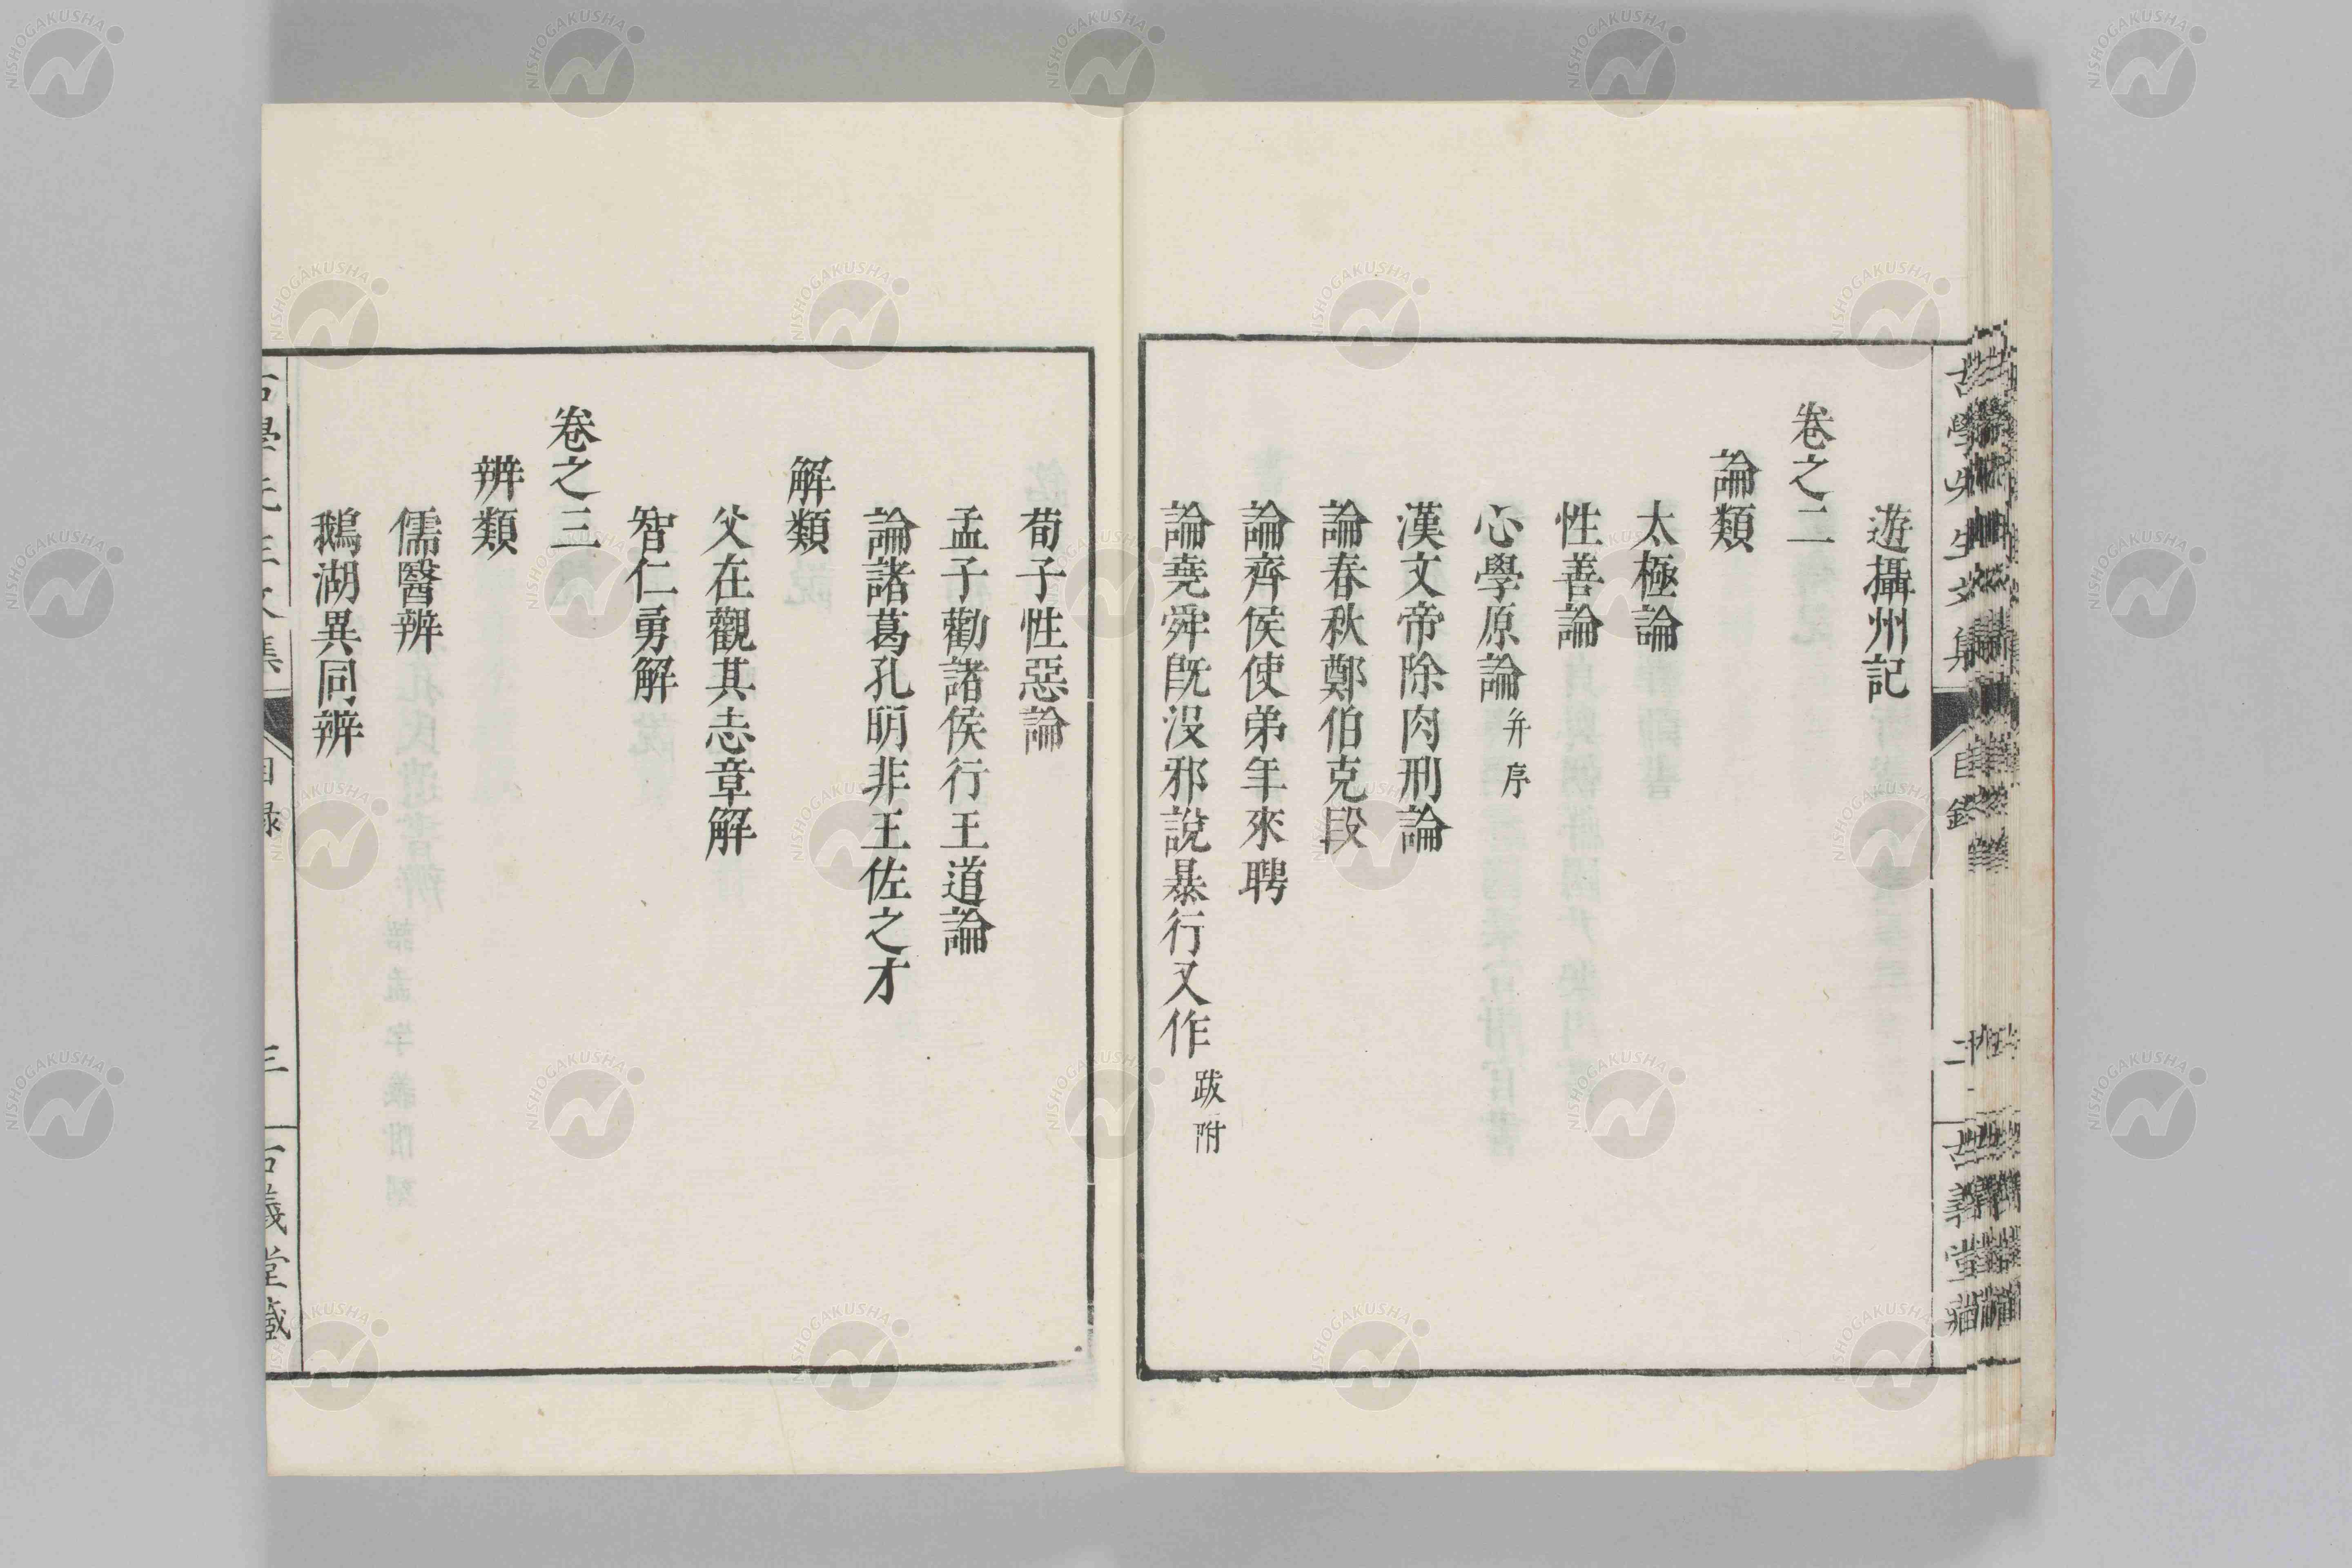 遊攝州記
卷之二
論類
太極論
性善論
心學原論 并序
漢文帝除肉刑論
論春秋鄭伯克段
論齊侯使弟年來聘
論堯舜旣沒邪說暴行又作 跋附
荀子性惡論
孟子勸諸侯行王道論
論諸葛孔明非王佐之才
解類
父在觀其志章解
智仁勇解
卷之三
辨類
儒醫辨
鵝湖異同辨
古學先生文集
目錄
三
古義堂藏
NISHOGAKUSHA